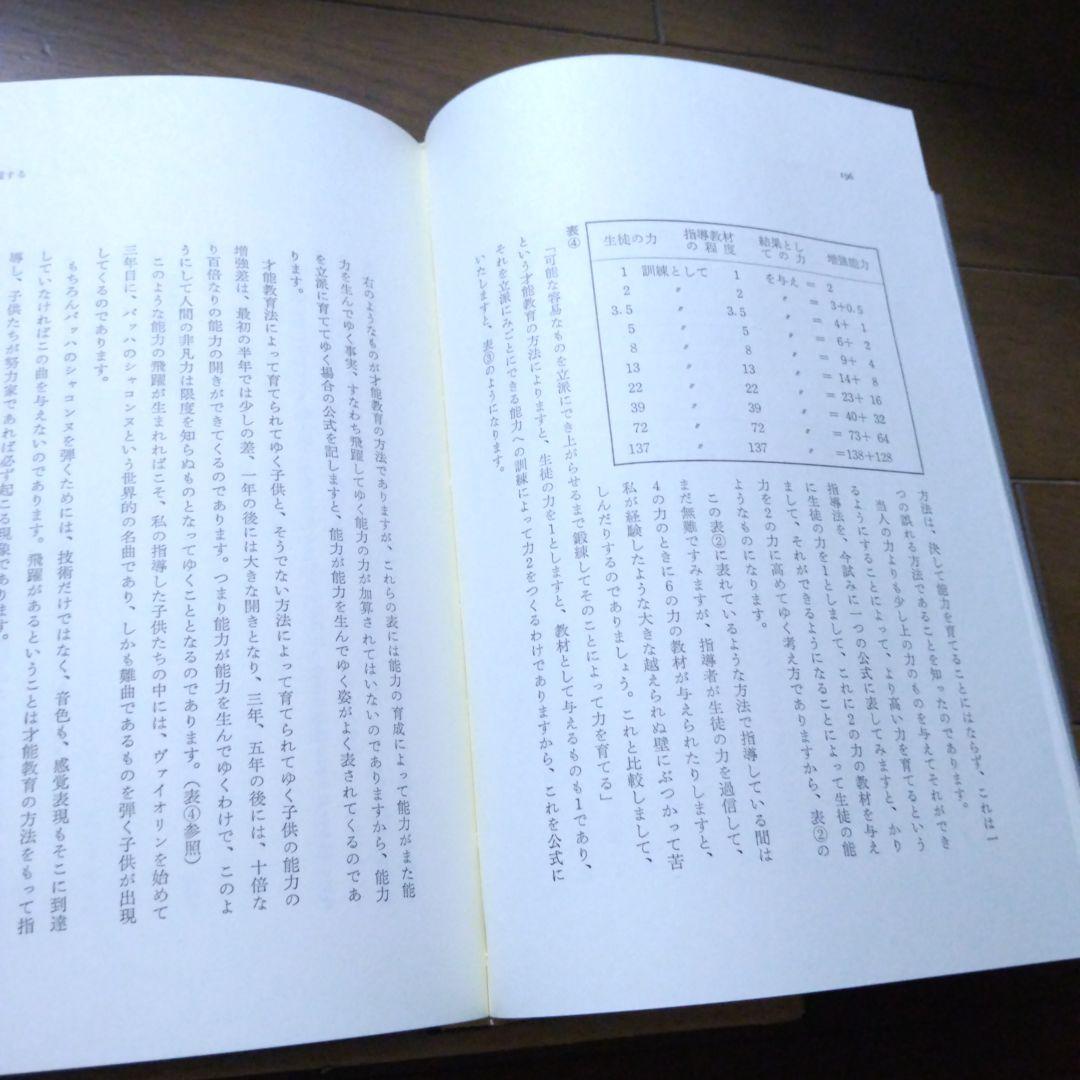 196
表④
生徒の力 指導教材の程度 結果としての力 増強能力
1 訓練として 1 を与え = 2
2 〃 2 〃 = 3+0.5
3.5 〃 3.5 〃 = 4+ 1
5 〃 5 〃 = 6+ 2
8 〃 8 〃 = 9+ 4
13 〃 13 〃 = 14+ 8
22 〃 22 〃 = 23+ 16
39 〃 39 〃 = 40+ 32
72 〃 72 〃 = 73+ 64
137 〃 137 〃 =138+128
方法は、決して能力を育てることにはならず、これは一
つの誤れる方法であることを知ったのであります。
当人の力よりも少し上の力のものを与えてそれができ
るようにすることによって、より高い力を育てるという
指導法を、今試みに一つの公式に表してみますと、かり
に生徒の力を1としまして、これに2の力の教材を与え
まして、それができるようになることによって生徒の能
力を2の力に高めてゆく考え方でありますから、表②の
ようなものになります。
この表②に表れているような方法で指導している間は
まだ無難ですみますが、指導者が生徒の力を過信して、
4の力のときに6の力の教材が与えられたりしますと、
私が経験したような大きな越えられぬ壁にぶつかって苦
しんだりするのでありましょう。これと比較しまして、
「可能な容易なものを立派にでき上がらせるまで鍛練してそのことによって力を育てる」
という才能教育の方法によりますと、生徒の力を1としますと、教材として与えるものも1であり、
それを立派にみごとにできる能力への訓練によって力2をつくるわけでありますから、これを公式に
いたしますと、表③のようになります。
する
右のようなものが才能教育の方法でありますが、これらの表には能力の育成によって能力がまた能
力を生んでゆく事実、すなわち飛躍してゆく能力の力が加算されてはいないのでありますから、能力
を立派に育ててゆく場合の公式を記しますと、能力が能力を生んでゆく姿がよく表されてくるのであ
ります。
才能教育法によって育てられてゆく子供と、そうでない方法によって育てられてゆく子供の能力の
増強差は、最初の半年では少しの差、一年の後には大きな開きとなり、三年、五年の後には、十倍な
り百倍なりの能力の開きができてくるのであります。つまり能力が能力を生んでゆくわけで、このよ
うにして人間の非凡力は限度を知らぬものとなってゆくこととなるのであります。（表④参照）
このような能力の飛躍が生まれればこそ、私の指導した子供たちの中には、ヴァイオリンを始めて
三年目に、バッハのシャコンヌという世界的の名曲であり、しかも難曲であるものを弾く子供が出現
してくるのであります。
もちろんバッハのシャコンヌを弾くためには、技術だけではなく、音色も、感覚表現もそこに到達
していなければこの曲を与えないのであります。飛躍があるということは才能教育の方法をもって指
導し、子供たちが努力家であれば必ず起こる現象であります。